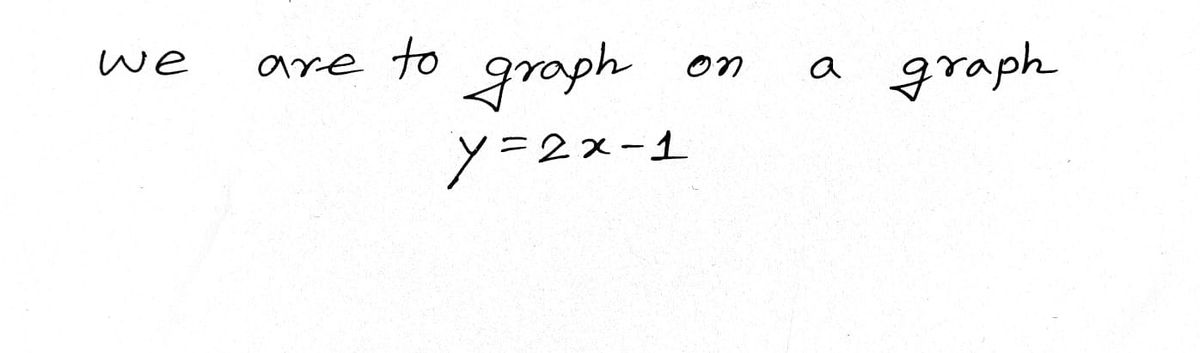 we are to graph on a graph
y=2x-1